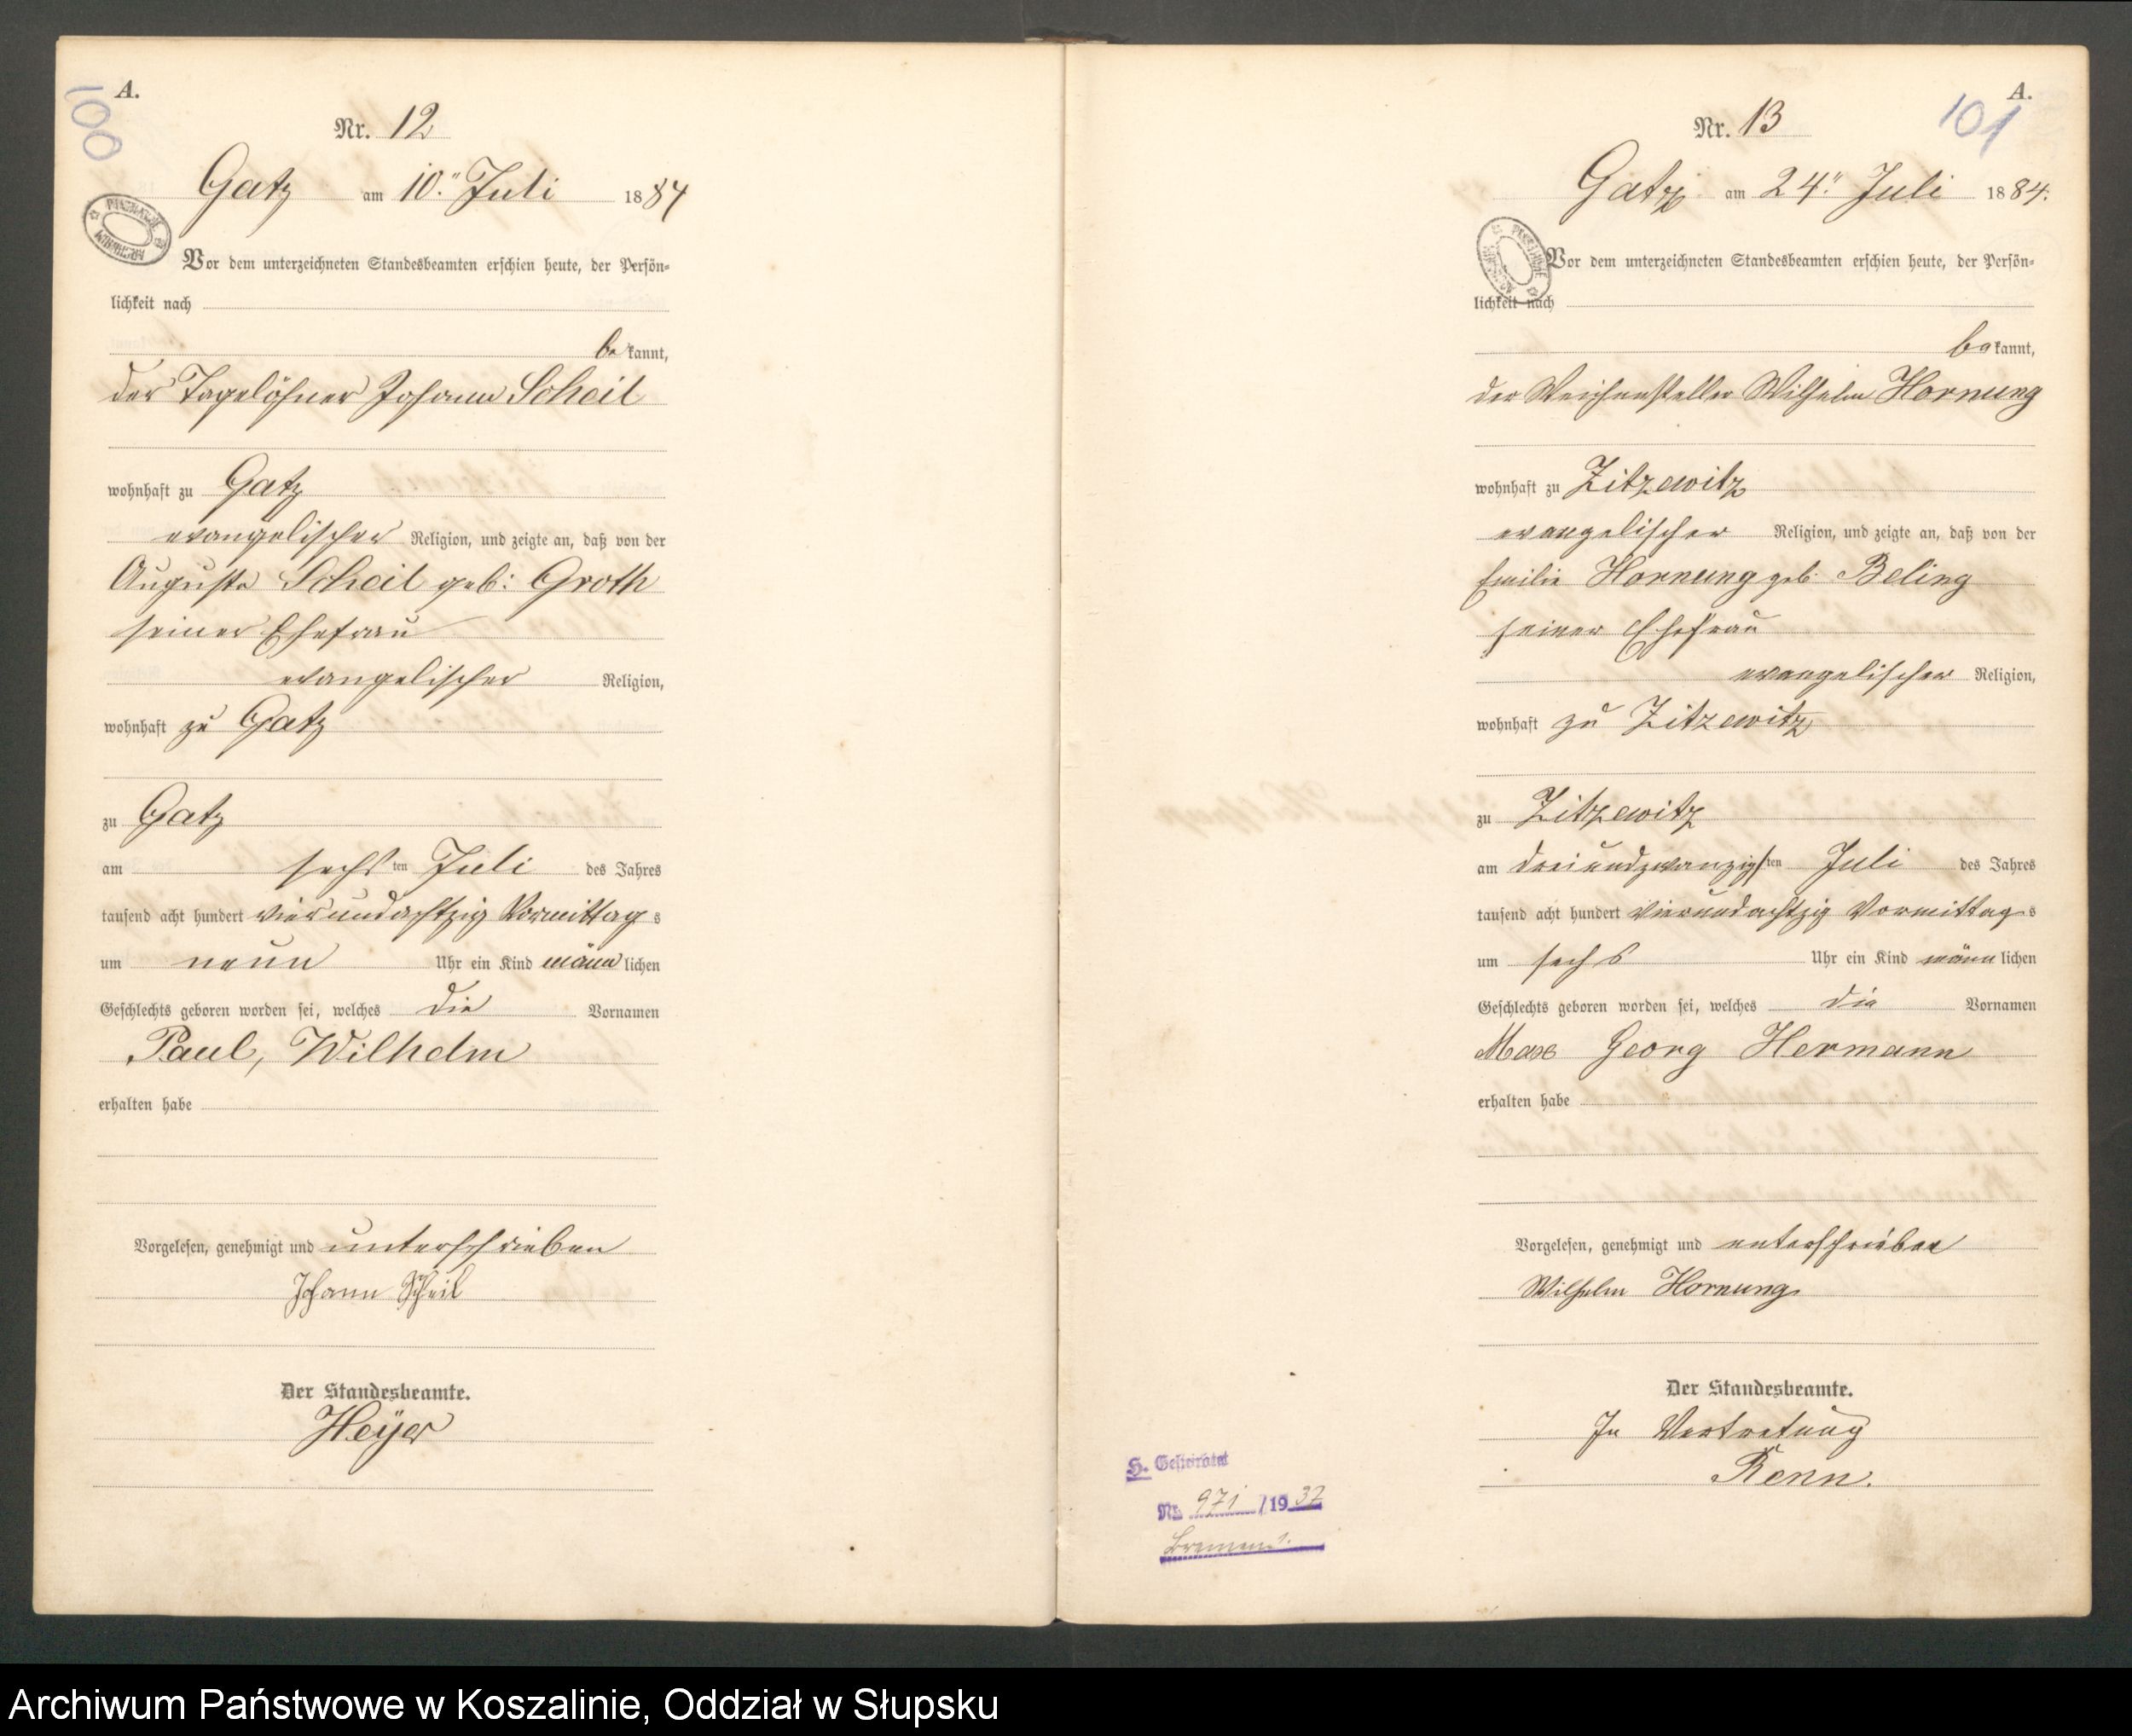 100
A.
Nr. 12
Gatz am 10." Juli 1884
Vor dem unterzeichneten Standesbeamten erschien heute, der Persön-
lichkeit nach
bekannt,
der Tagelöhner Johann Scheil
wohnhaft zu Gatz
evangelischer Religion, und zeigte an, daß von der
Auguste Scheil geb: Groth
seiner Ehefrau
evangelischer Religion,
wohnhaft zu Gatz
zu Gatz
am sechsten Juli des Jahres
tausend acht hundert vierundachtzig Vormittags
um neun Uhr ein Kind männlichen
Geschlechts geboren worden sei, welches die Vornamen
Paul, Wilhelm
erhalten habe
Vorgelesen, genehmigt und unterschrieben
Johann Scheil
Der Standesbeamte.
Heyer
A.
101
Nr. 13
Gatz am 24." Juli 1884.
Vor dem unterzeichneten Standesbeamten erschien heute, der Persön-
lichkeit nach
bekannt,
der Weichensteller Wilhelm Hornung
wohnhaft zu Zitzewitz
evangelischer Religion, und zeigte an, daß von der
Emilie Hornung geb. Beling
seiner Ehefrau
evangelischer Religion,
wohnhaft zu Zitzewitz
zu Zitzewitz
am dreiundzwanzigsten Juli des Jahres
tausend acht hundert vierundachtzig Vormittags
um sechs Uhr ein Kind männlichen
Geschlechts geboren worden sei, welches die Vornamen
Max Georg Hermann
erhalten habe
Vorgelesen, genehmigt und unterschrieben
Wilhelm Hornung
Der Standesbeamte.
In Vertretung
Renn.
H. Geheiratet
Nr. 971 /1937
Archiwum Państwowe w Koszalinie, Oddział w Słupsku